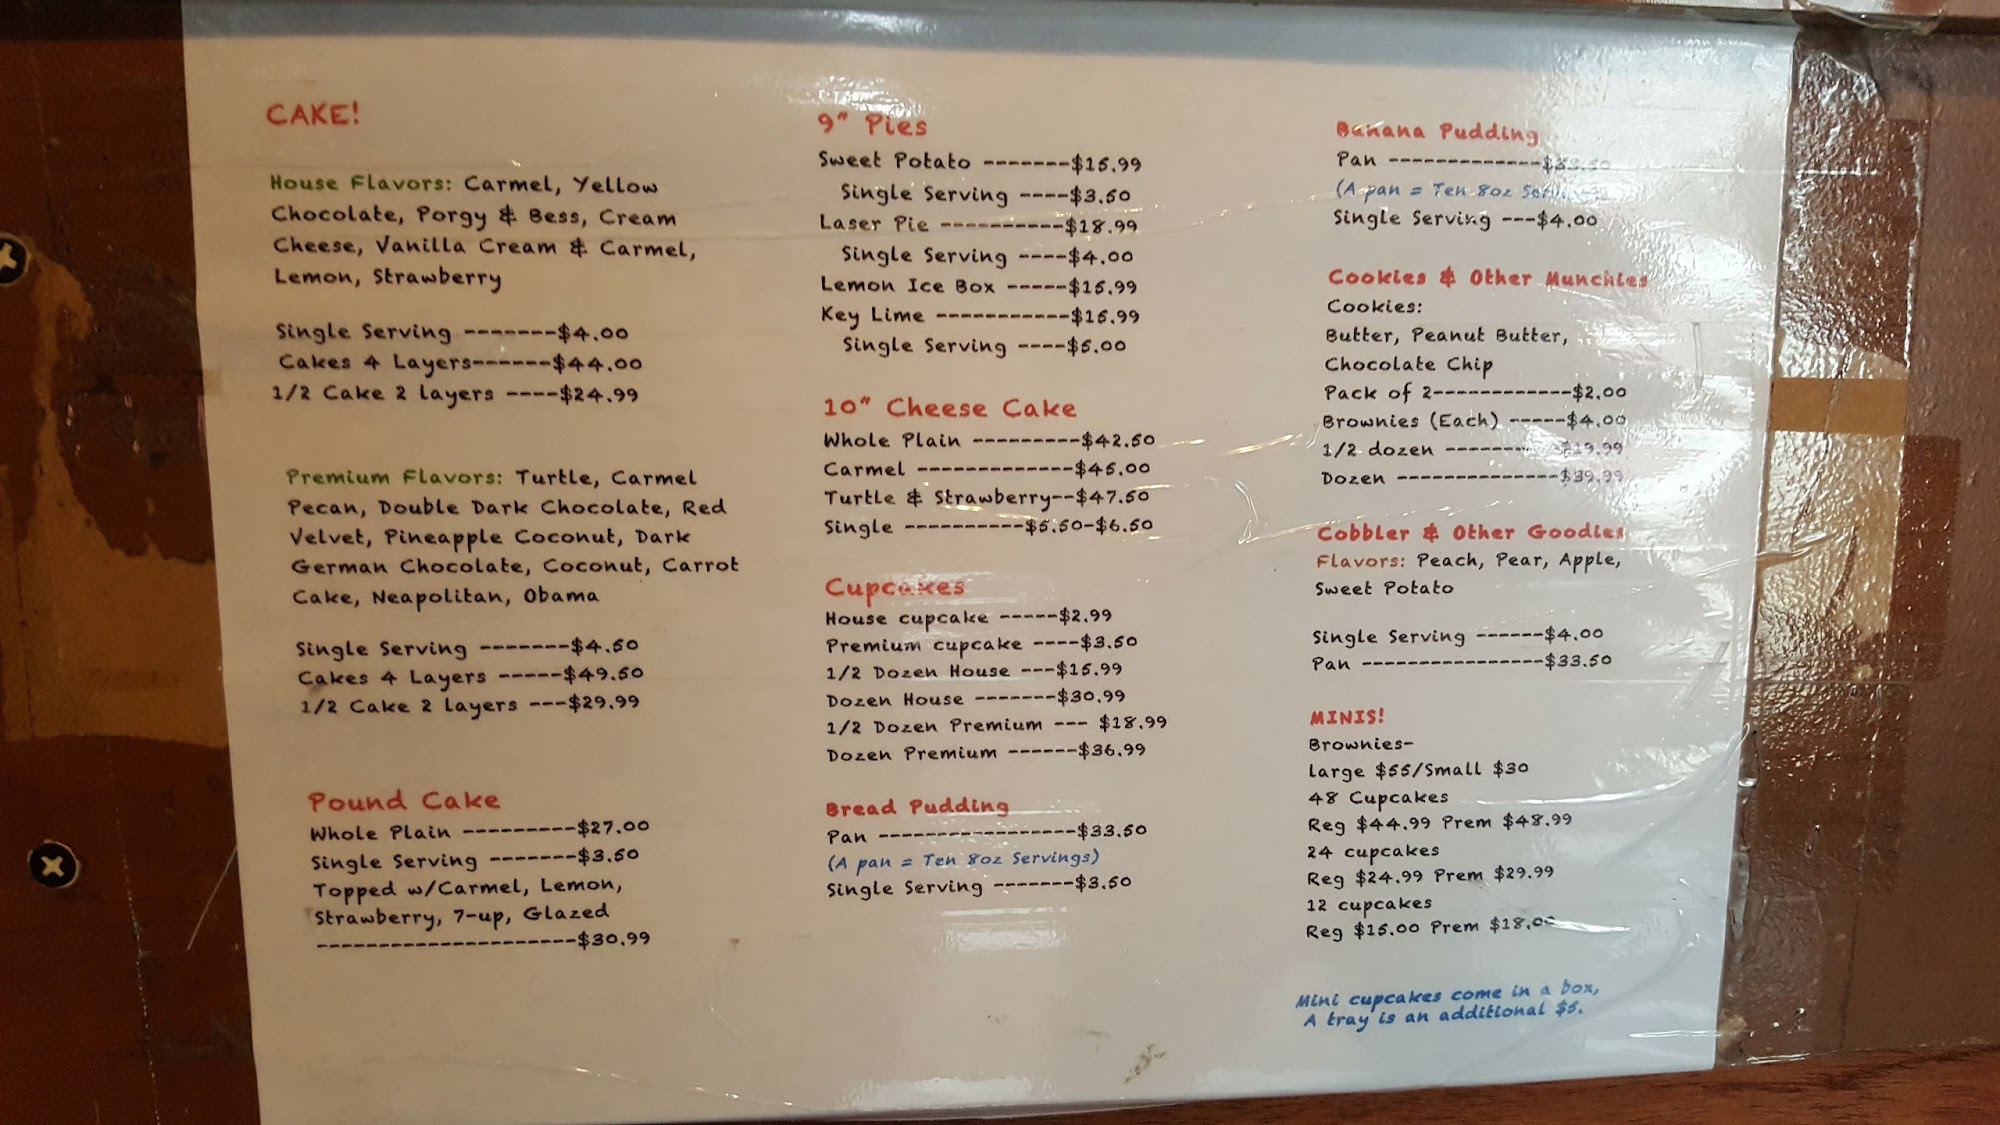 CAKE!
House Flavors: Carmel, Yellow
Chocolate, Porgy & Bess, Cream
Cheese, Vanilla Cream & Carmel,
Lemon, Strawberry
Single Serving -------$4.00
Cakes 4 Layers------$44.00
1/2 Cake 2 layers ----$24.99
Premium Flavors: Turtle, Carmel
Pecan, Double Dark Chocolate, Red
Velvet, Pineapple Coconut, Dark
German Chocolate, Coconut, Carrot
Cake, Neapolitan, Obama
Single Serving -------$4.50
Cakes 4 Layers -----$49.50
1/2 Cake 2 layers ---$29.99
Pound Cake
Whole Plain ---------$27.00
Single Serving -------$3.50
Topped w/Carmel, Lemon,
Strawberry, 7-up, Glazed
---------------------$30.99
9" Pies
Sweet Potato -------$15.99
Single Serving ----$3.50
Laser Pie ----------$18.99
Single Serving ----$4.00
Lemon Ice Box -----$15.99
Key Lime -----------$15.99
Single Serving ----$5.00
10" Cheese Cake
Whole Plain ---------$42.50
Carmel -------------$45.00
Turtle & Strawberry--$47.50
Single ----------$5.50-$6.50
Cupcakes
House cupcake -----$2.99
Premium cupcake ----$3.50
1/2 Dozen House ---$15.99
Dozen House -------$30.99
1/2 Dozen Premium --- $18.99
Dozen Premium ------$36.99
Bread Pudding
Pan ----------------$33.50
(A pan = Ten 8oz Servings)
Single Serving -------$3.50
Banana Pudding
Pan -------------$33.50
(A pan = Ten 8oz Servings)
Single Serving ---$4.00
Cookies & Other Munchies
Cookies:
Butter, Peanut Butter,
Chocolate Chip
Pack of 2------------$2.00
Brownies (Each) -----$4.00
1/2 dozen ---------$19.99
Dozen --------------$39.99
Cobbler & Other Goodies
Flavors: Peach, Pear, Apple,
Sweet Potato
Single Serving ------$4.00
Pan ----------------$33.50
MINIS!
Brownies-
large $55/Small $30
48 Cupcakes
Reg $44.99 Prem $48.99
24 cupcakes
Reg $24.99 Prem $29.99
12 cupcakes
Reg $15.00 Prem $18.00
Mini cupcakes come in a box,
A tray is an additional $5.